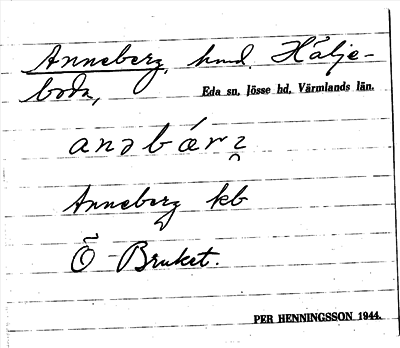 Anneberg, hmd. Hälje-
boda,
Eda sn, Jösse hd, Värmlands län.
Anneberg kb
Ö Bruket.
PER HENNINGSSON 1944.